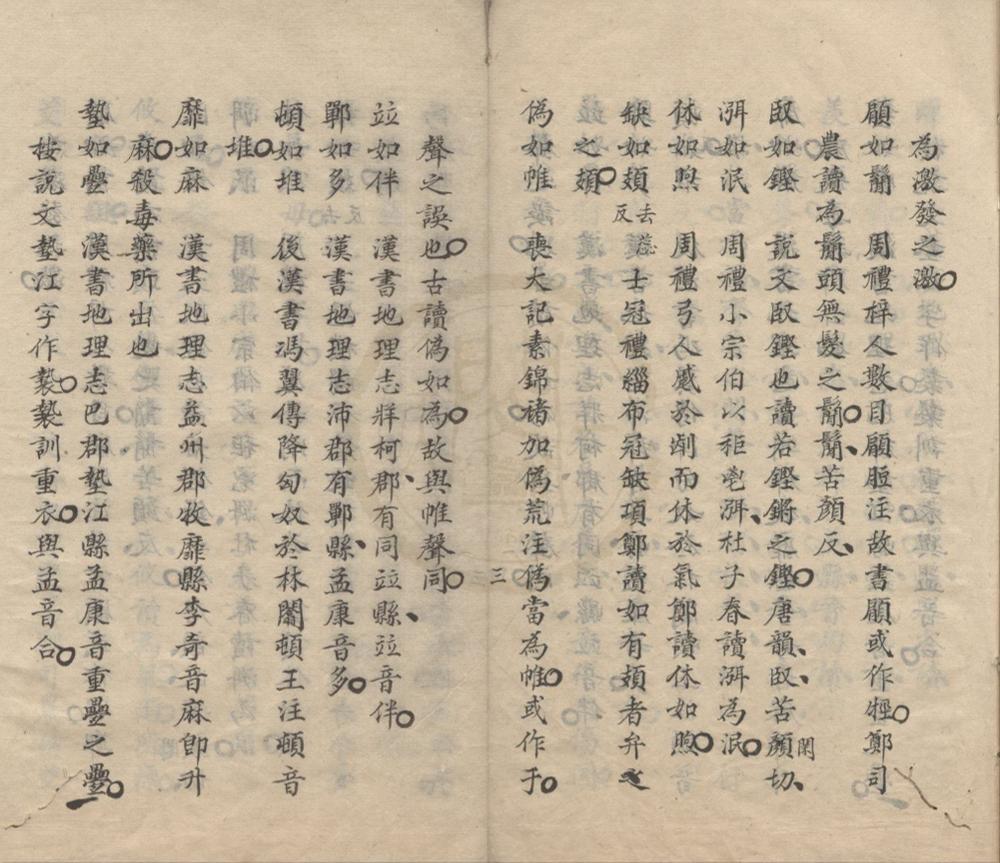 為激發之激
顧如鬜　周禮梓人數目顧脰注故書顧或作牼鄭司
農讀為鬜頭無髮之鬜鬜苦顏反
臤如鏗　說文臤鏗也讀若鏗鏘之鏗唐韻臤苦顏切
閑
渳如泯　周禮小宗伯以秬鬯渳杜子春讀渳為泯
休如煦　周禮弓人蹙於㓸而休於氣鄭讀休如煦
缺如頍去蕊反　士冠禮緇布冠缺項鄭讀如有頍者弁之
之頍
偽如帷　喪大記素錦褚加偽荒注偽當為帷或作于
三
聲之誤也古讀偽如為故與帷聲同
竝如伴　漢書地理志牂柯郡有同竝縣竝音伴
鄲如多　漢書地理志沛郡有鄲縣孟康音多
頓如堆　後漢書馮翼傳降匈奴於林闟頓王注頓音
堆
靡如麻　漢書地理志益州郡收靡縣李奇音麻卽升
麻殺毒藥所出也
墊如疊　漢書地理志巴郡墊江縣孟康音重疊之疊
按說文墊江字作褺褺訓重衣與孟音合